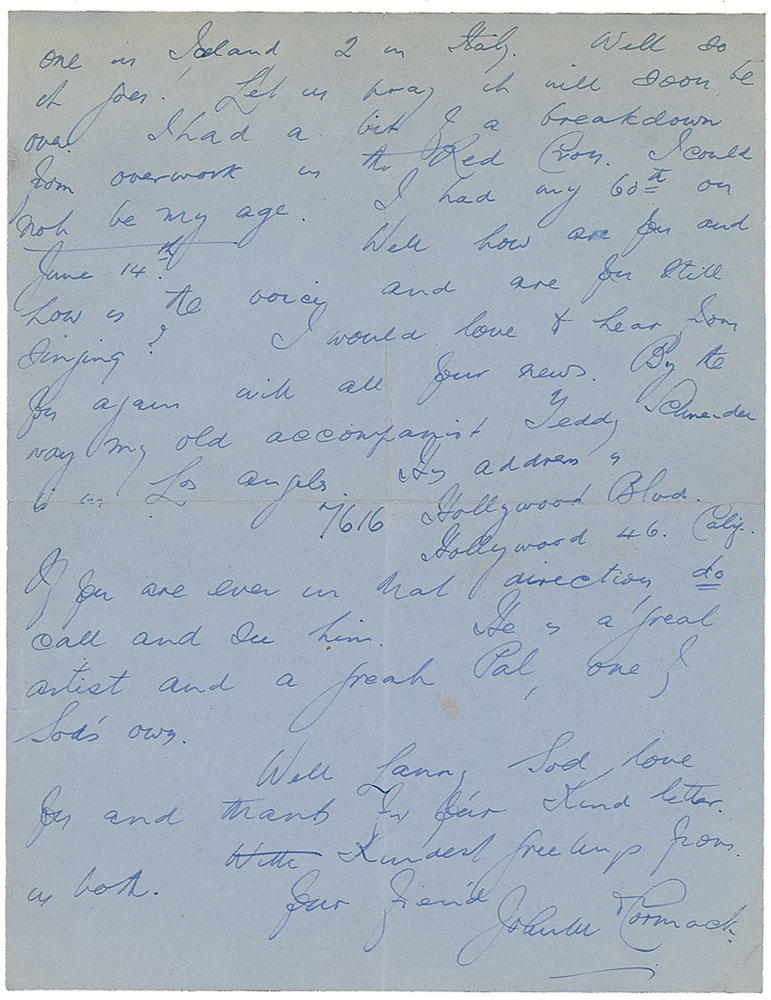 one in Iceland 2 in Italy. Well so
it goes! Let us pray it will soon be
over. I had a bit of a breakdown
from overwork in the Red Cross. I could
not be my age. I had my 60th on
June 14th. Well how are you and
how is the voice, and are you still
singing? I would love to hear from
you again with all your news. By the
way my old accompanist Teddy Schneider
is in Los Angeles. His address is
7616 Hollywood Blvd.
Hollywood 46. Calif.
If you are ever in that direction, do
call and see him. He is a great
artist and a great Pal, one of
God's own.
Well God love
you and thanks for your kind letter.
With Kindest greetings from
us both.
Your friend
John McCormack.